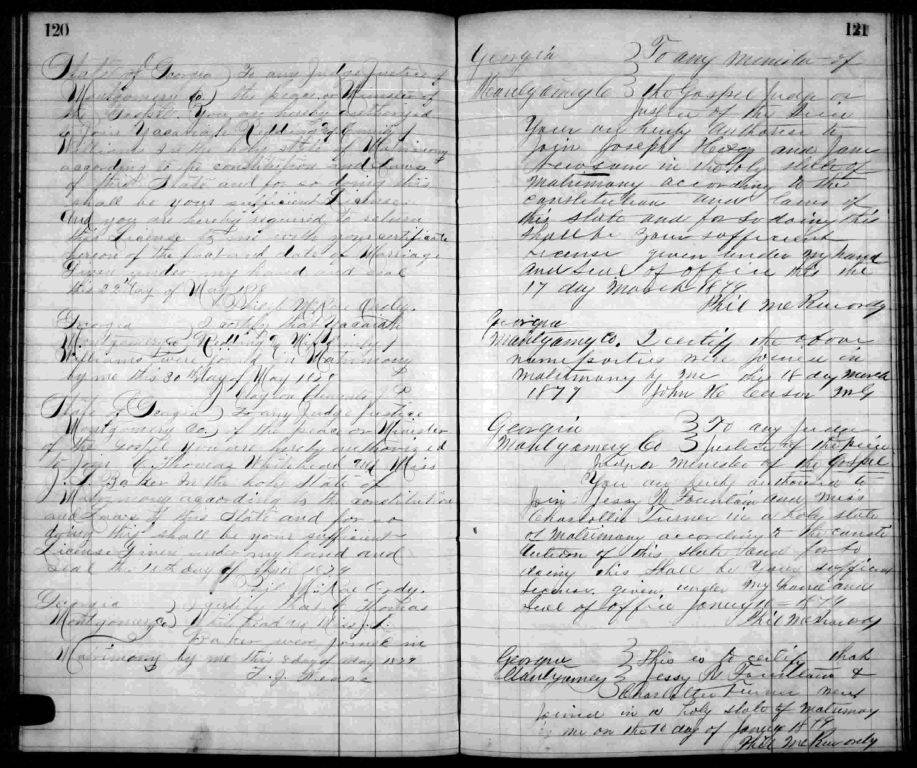 120
State of Georgia ) To any Judge Justice of
Montgomery Co ) the peace or Minister of
the Gospel. You are hereby authorized
to join Zachariah Redding & of
Williams in the holy state of Matrimony
according to the constitution and Laws
of this State and for so doing this
shall be your sufficient License
And you are hereby required to return
this License to me with your certificate
hereon of the fact and date of Marriage
Given under my hand and seal
this 22nd day of May 1878
McRae Ordy.
Georgia ) I certify that Zacariah
Montgomery Co ) Redding &
Williams were joined in Matrimony
by me this 30th day of May 1878
Clayton
State of Georgia ) To any Judge Justice
Montgomery Co ) of the peace or Minister
of the Gospel you are hereby authorized
to join C. Thomas Whitehead and Miss
Baker in the holy State of
Matrimony according to the constitution
and Laws of this State and for so
doing this shall be your sufficient
License Given under my hand and
seal this day of April 1879
McRae Ordy.
Georgia ) I certify that C Thomas
Montgomery Co ) Whitehead & Miss
Baker were joined in
Matrimony by me this day of May 1879
T. J.
121
Georgia } To any minister of
Montgomery Co } the Gospel Judge or
Justice of the
Your are herby authorised to
join Joseph and Jane
Newsom in the holy state of
matrimony according to the
constitution and laws of
this state and for so doing this
shall be your sufficient
License given under my hand
and seal of office this the
17 day March 1879
Phil McRae ordy
Georgia
Montgomery Co. I certify the above
name parties were joined in
matrimony by me this 18 day March
1879 John M G
Georgia } To any judge
Montgomery Co } Justice of the
or Minister of the Gospel
You are herby authorised to
join Jessy N Fountain and miss
Charlottie Turner in a holy state
of matrimony according to the consti
tution of this state and for so
doing this shall be your sufficient
License. given under my hand and
seal of office 1879
Phil McRae ordy
Georgia } This is to certify that
Montgomery } Jessy N Fountain &
Charlottie Turner were
joined in a holy state of matrimony
by me on the 10 day of 1879
Phil McRae ordy